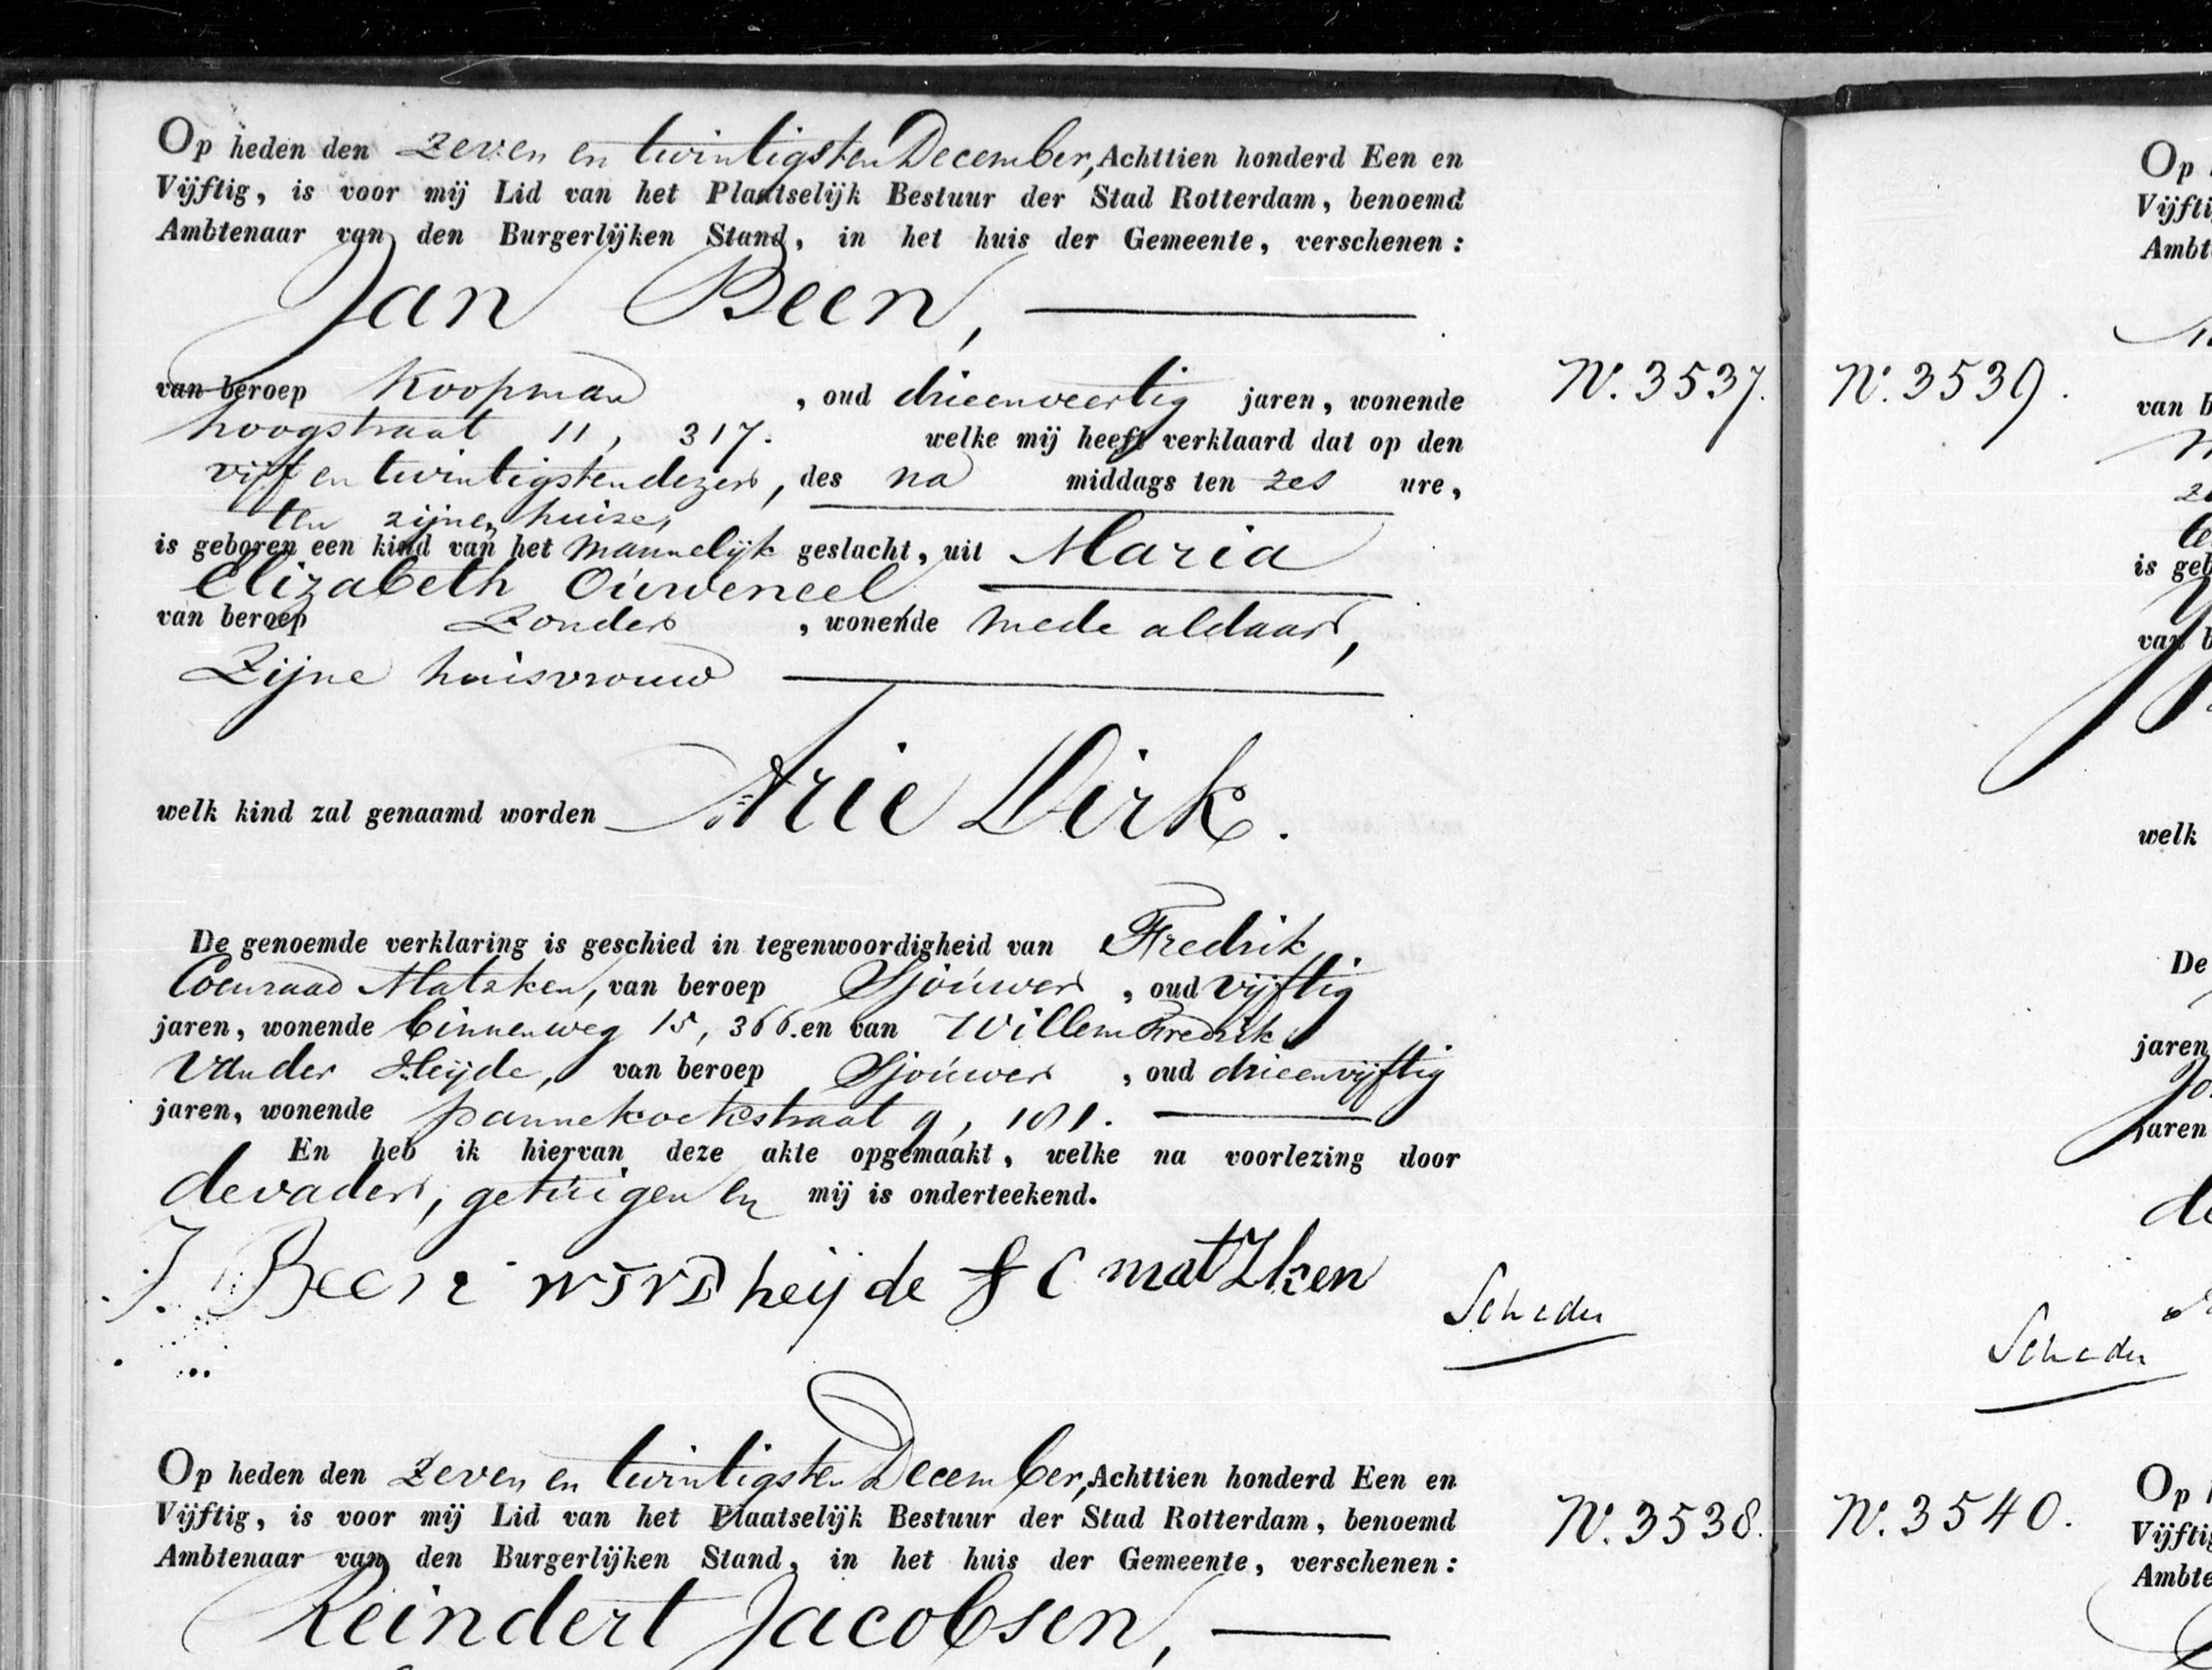 Op heden den zeven en twintigsten December, Achttien honderd Een en
Vijftig, is voor mij Lid van het Plaatselijk Bestuur der Stad Rotterdam, benoemd
Ambtenaar van den Burgerlijken Stand, in het huis der Gemeente, verschenen:
Jan Been,
van beroep Koopman, oud drieenveertig jaren, wonende
hoogstraat 11, 317. welke mij heeft verklaard dat op den
vijf en twintigsten dezer, des na middags ten zes ure,
ten zijnen huize,
is geboren een kind van het mannelijk geslacht, uit Maria
Elizabeth Ouweneel
van beroep zonder, wonende mede aldaar,
Zijne huisvrouw
welk kind zal genaamd worden Arie Dirk.
De genoemde verklaring is geschied in tegenwoordigheid van Fredrik
Coenraad Matzken, van beroep Sjouwer, oud vijftig
jaren, wonende binnenweg 15, 366. en van Willem Fredrik
Vander Heijde, van beroep Sjouwer, oud drieenvijftig
jaren, wonende pannekoekstraat 9, 181.
En heb ik hiervan deze akte opgemaakt, welke na voorlezing door
de vader, getuigen en mij is onderteekend.
J. Been heijde F C matzken
Scheder
N. 3537.
Op heden den zeven en twintigsten December, Achttien honderd Een en
Vijftig, is voor mij Lid van het Plaatselijk Bestuur der Stad Rotterdam, benoemd
Ambtenaar van den Burgerlijken Stand, in het huis der Gemeente, verschenen:
Reindert Jacobsen,
N. 3538.
N. 3539.
Op
Vijfti
Ambt
van b
is geb
van b
welk
De
jaren
jaren
de
Scheder
N. 3540.
Op
Vijftig
Ambte